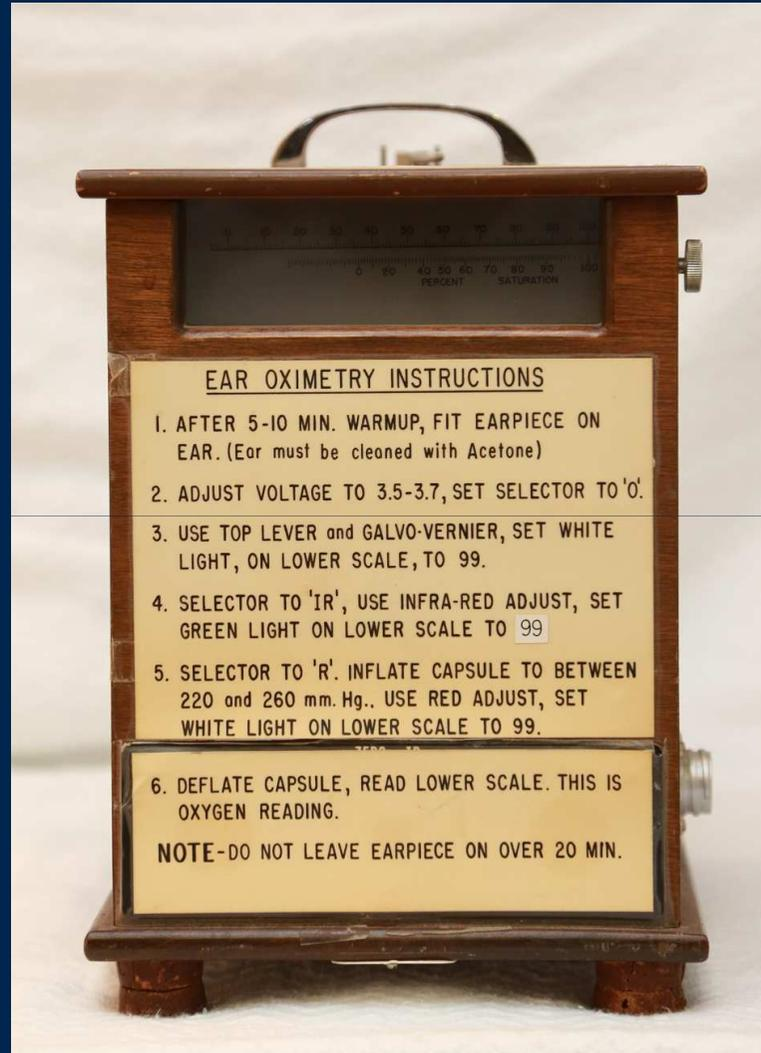 0 10 20 30 40 50 60 70 80 90 100
0 20 40 50 60 70 80 90 100
PERCENT SATURATION
EAR OXIMETRY INSTRUCTIONS
1. AFTER 5-10 MIN. WARMUP, FIT EARPIECE ON
EAR. (Ear must be cleaned with Acetone)
2. ADJUST VOLTAGE TO 3.5-3.7, SET SELECTOR TO 'O'.
3. USE TOP LEVER and GALVO-VERNIER, SET WHITE
LIGHT, ON LOWER SCALE, TO 99.
4. SELECTOR TO 'IR', USE INFRA-RED ADJUST, SET
GREEN LIGHT ON LOWER SCALE TO 99
5. SELECTOR TO 'R'. INFLATE CAPSULE TO BETWEEN
220 and 260 mm. Hg.. USE RED ADJUST, SET
WHITE LIGHT ON LOWER SCALE TO 99.
6. DEFLATE CAPSULE, READ LOWER SCALE. THIS IS
OXYGEN READING.
NOTE-DO NOT LEAVE EARPIECE ON OVER 20 MIN.